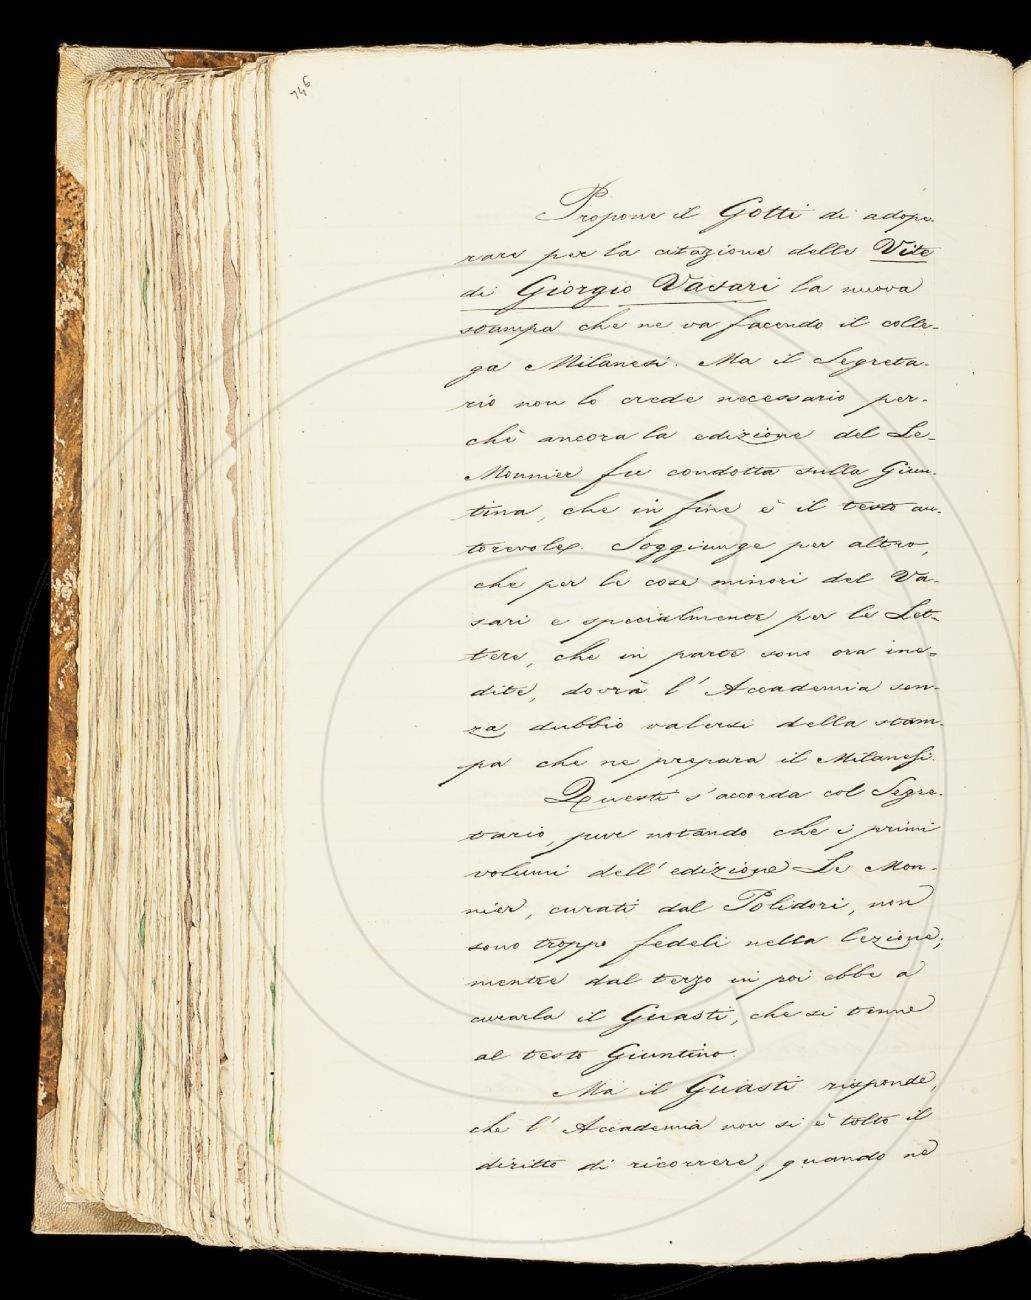 746
Propone il Gotti di adope-
rare per la citazione delle Vite
di Giorgio Vasari la nuova
stampa che ne va facendo il colle-
ga Milanesi. Ma il Segreta-
rio non lo crede necessario per-
chè ancora la edizione del Le-
Monnier fu condotta sulla Giun-
tina, che in fine è il testo au-
torevole. Soggiunge per altro,
che per le cose minori del Va-
sari e specialmente per le Let-
tere, che in parte sono ora ine-
dite, dovrà l'Accademia sen-
za dubbio valersi della stam-
pa che ne prepara il Milanesi.
Questi s'accorda col Segre-
tario, pur notando che i primi
volumi dell'edizione Le Mon-
nier, curati dal Polidori, non
sono troppo fedeli nella lezione;
mentre dal terzo in poi ebbe a
curarla il Guasti, che si tenne
al testo Giuntino.
Ma il Guasti risponde,
che l'Accademia non si è tolto il
diritto di ricorrere, quando ne